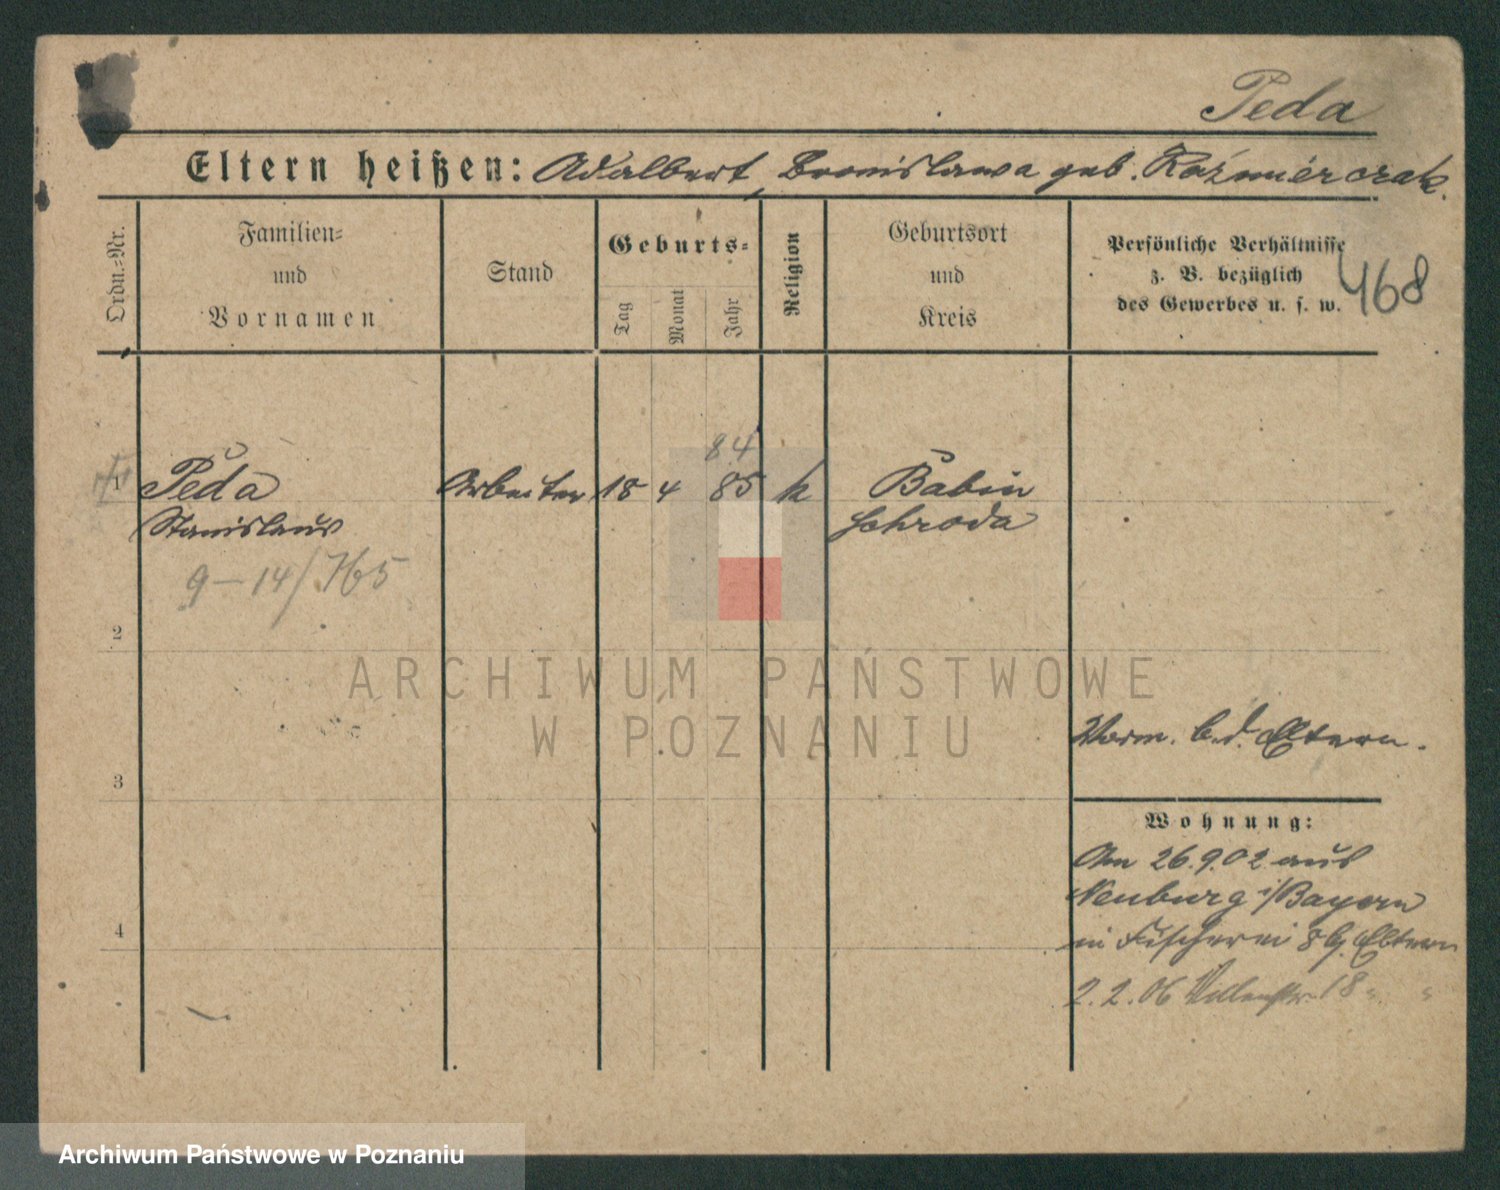 Peda
Eltern heißen: Adalbert, Bronislawa geb. Kaźmierczak.
Ordn.-Nr.
Familien-
und
Vornamen
Stand
Geburts-
Tag
Monat
Jahr
Religion
Geburtsort
und
Kreis
Persönliche Verhältnisse
z. B. bezüglich
des Gewerbes u. s. w.
468
84
1 Peda Arbeiter 18 4 85 k Babin
Stanislaus Schroda
9-14/765
2
3
4
ARCHIWUM PAŃSTWOWE
W POZNANIU
Vorm. b. d. Eltern.
Wohnung:
Am 26.9.02 aus
Neuburg i/Bayern
in Fischerei 8 bj. Eltern
2.2.06 18
Archiwum Państwowe w Poznaniu